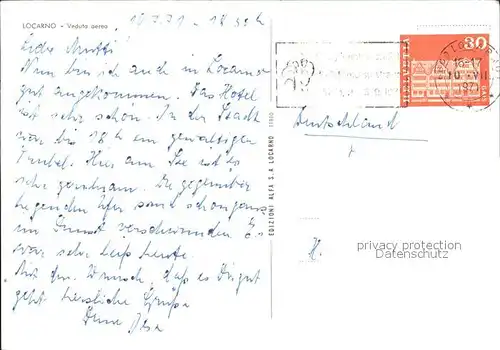 LOCARNO - Veduta aerea
10.7.71 - 18 30 h
Liebe Mutti!
Nun bin ich auch in Locarno
gut angekommen. Das Hotel
ist sehr schön. In der Stadt
war bis 18 h ein gewaltiger
Trubel. Hier am See ist es
sehr geruhsam. Die gegenüber
liegenden Ufer sind schon ganz
im Dunst verschwunden. Es
war sehr heiß heute.
Mit dem Wunsch, daß es Dir gut
geht herzliche Grüße
Deine
EDIZIONI ALFA S.A LOCARNO
HELVETIA
30
16-17
1971
Deutschland
H.
privacy protection
Datenschutz